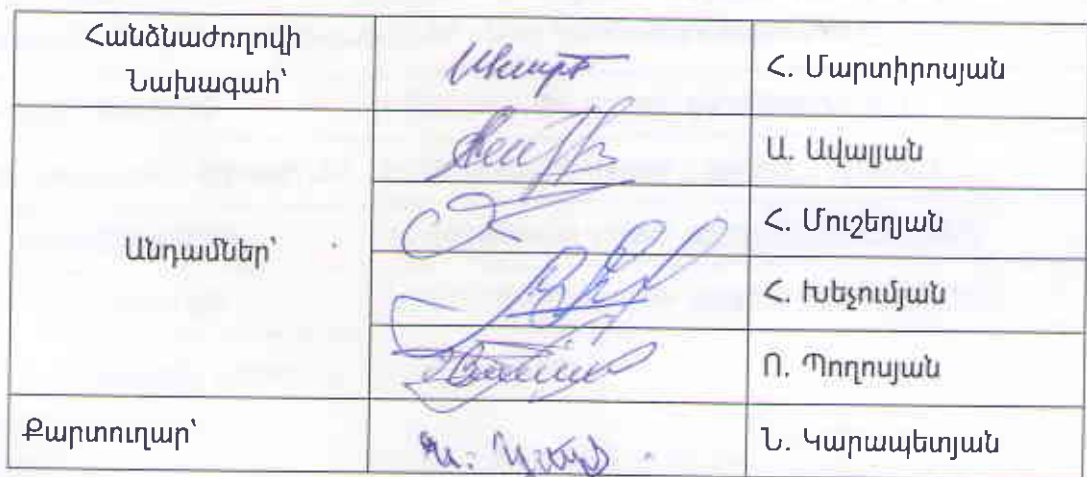 Հանձնաժողովի
Նախագահ՝
Հ. Մարտիրոսյան
Ա. Ավալյան
Հ. Մուշեղյան
Անդամներ՝
Հ. Խեչումյան
Ո. Պողոսյան
Քարտուղար՝
Ն. Կարապետյան